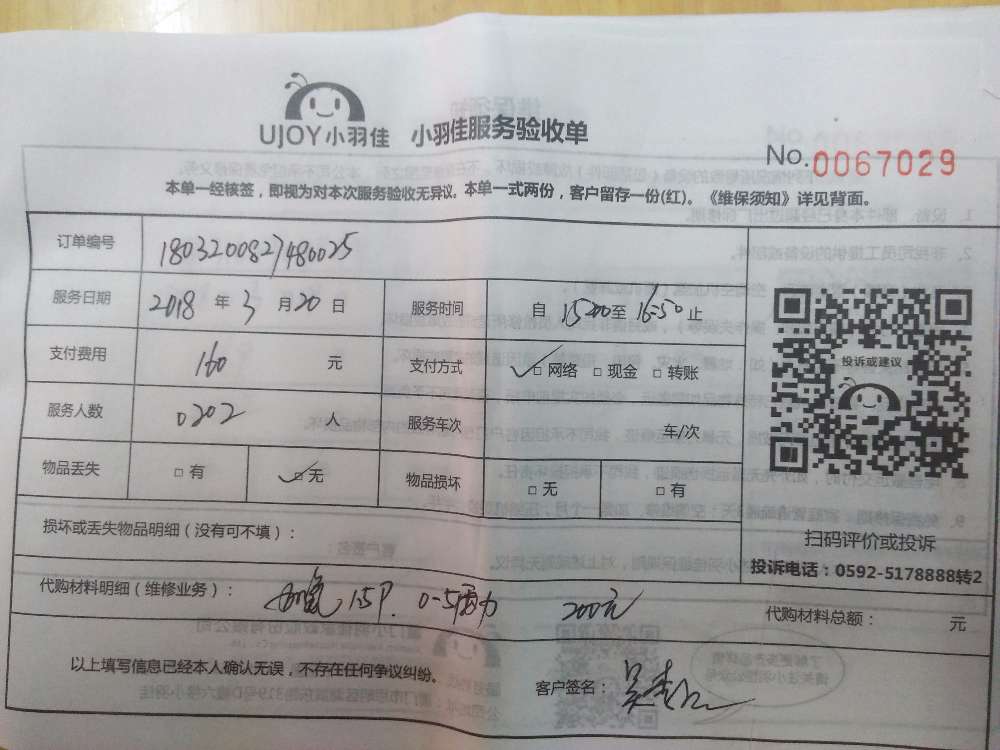 UJOY小羽佳 小羽佳服务验收单
No.0067029
本单一经核签，即视为对本次服务验收无异议。本单一式两份，客户留存一份(红)。《维保须知》详见背面。
订单编号 1803200827480025
服务日期 2018 年 3 月 20 日 服务时间 自 1520 至 16-50 止
支付费用 160 元 支付方式 ✓□ 网络 □ 现金 □ 转账
投诉或建议
服务人数 0202 人 服务车次 车/次
物品丢失 □ 有 ✓□ 无 物品损坏 □ 无 □ 有
损坏或丢失物品明细（没有可不填）：
扫码评价或投诉
投诉电话：0592-5178888转2
代购材料明细（维修业务）： 加氟 1.5P. 0-5 力 200元 代购材料总额： 元
以上填写信息已经本人确认无误，不存在任何争议纠纷。 客户签名：